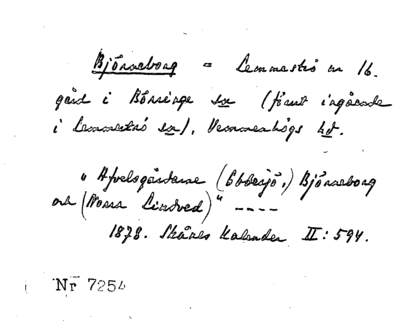 Björneborg = Lemmeströ nr 16.
gård i Börringe sn (förut ingående
i Lemmeströ sn), Vemmenhögs hd.
"Afvelsgårdarne (Ebbesjö,) Björneborg
och (Norra Lindved)" ----
1878. Skånes Kalender II: 594.
Nr 7254